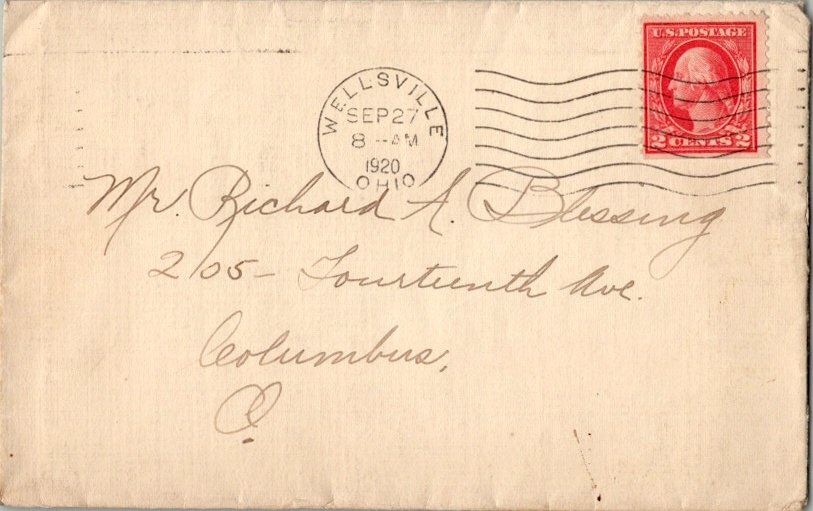 U.S. POSTAGE
2 CENTS 2
WELLSVILLE
SEP 27
8 -- AM
1920
OHIO
Mr. Richard A. Blessing
205 – Fourteenth Ave.
Columbus,
O.